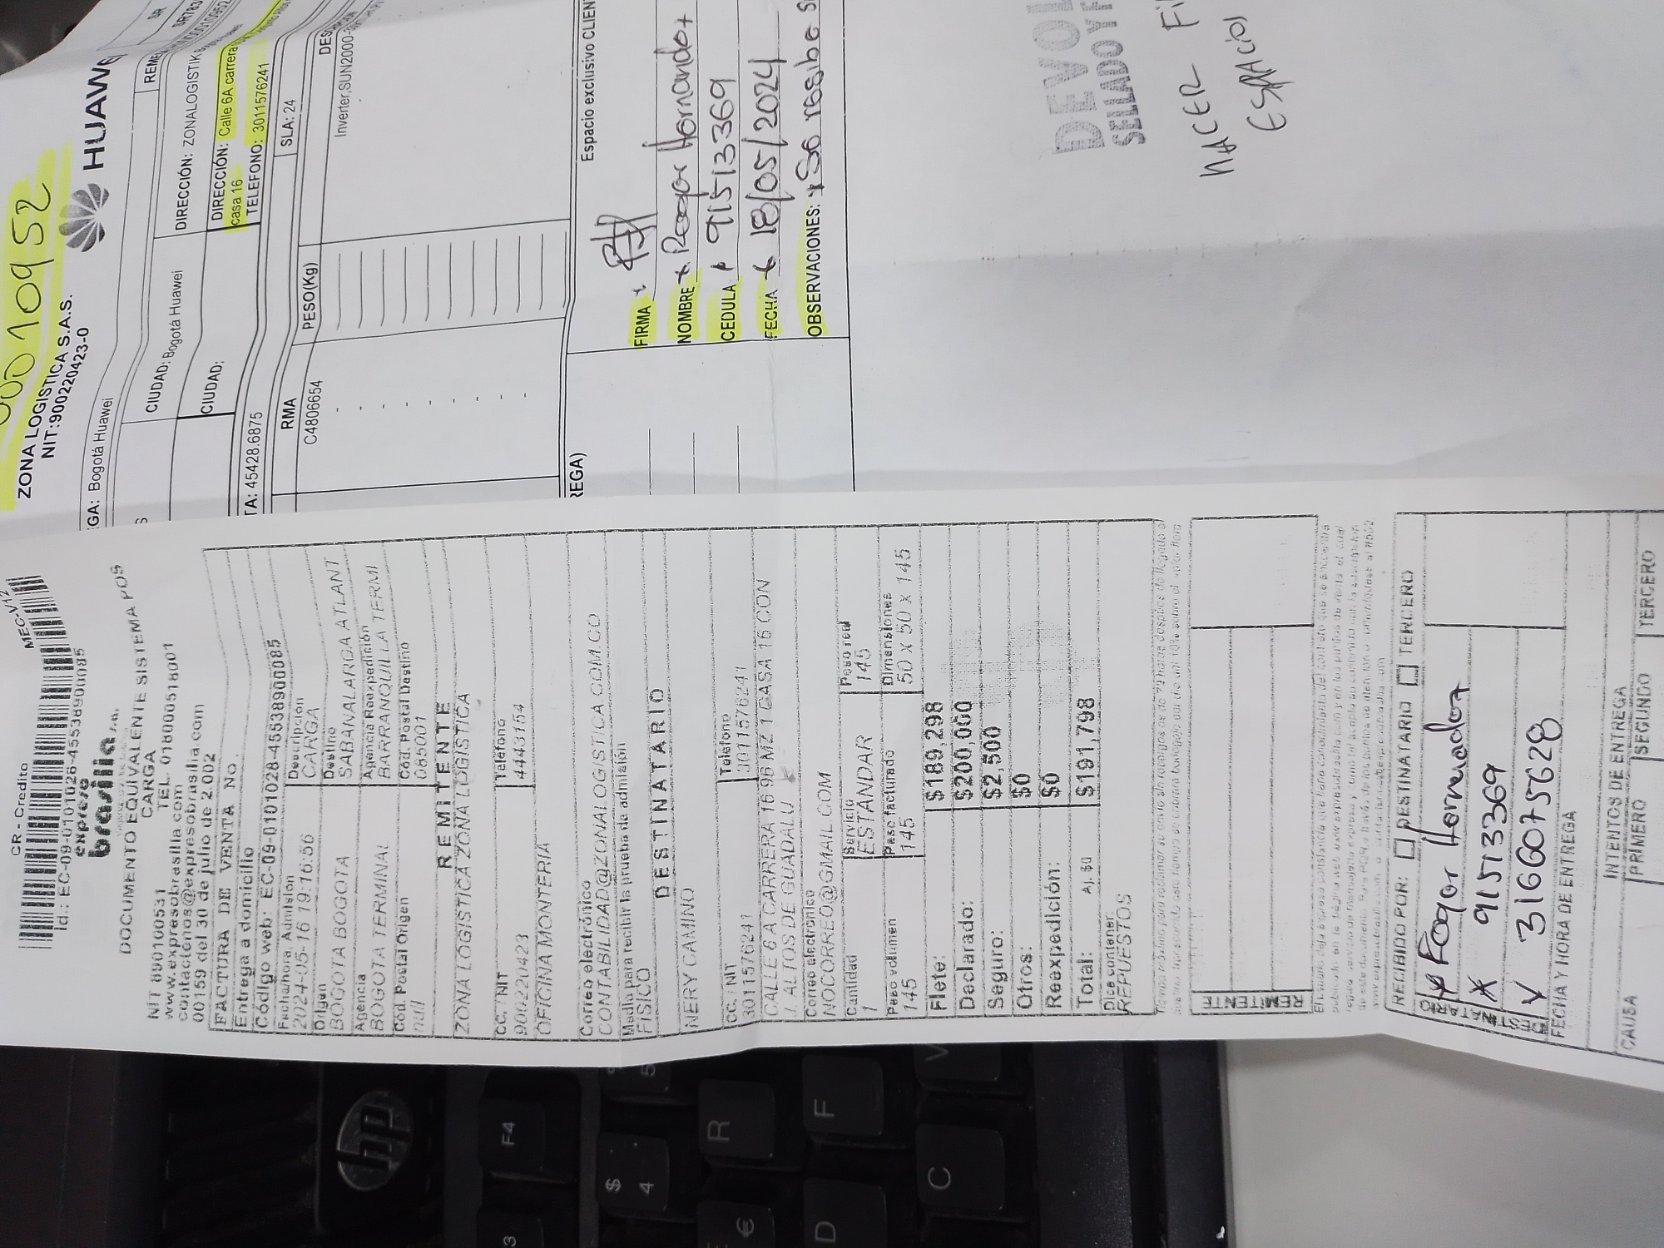 CR - Credito
MEC-V12
Id.: EC-09-0101028-45538900085
expreso
brasilia s.a.
DOCUMENTO EQUIVALENTE SISTEMA POS
CARGA
NIT 890100531 TEL. 018000518001
www.expresobrasilia.com
contactenos@expresobrasilia.com
00159 del 30 de julio de 2.002
FACTURA DE VENTA No.
Entrega a domicilio
Código web: EC-09-0101028-45538900085
Fecha/hora Admisión Descripción
2024-05-16 19:16:56 CARGA
Origen Destino
BOGOTA BOGOTA SABANALARGA ATLANT
Agencia Agencia Reexpedición
BOGOTA TERMINAL BARRANQUILLA TERMI
Cód. Postal Origen Cód. Postal Destino
null 085001
REMITENTE
ZONA LOGISTICA ZONA LOGISTICA
CC. NIT Teléfono
900220423 4443154
OFICINA MONTERIA
Correo electrónico
CONTABILIDAD@ZONALOGISTICA.COM.CO
Medio para recibir la prueba de admisión
FISICO
DESTINATARIO
NERY CAMINO
CC. / NIT Teléfono
3011576241 3011576241
CALLE 6 A CARRERA 16 96 MZ 1 CASA 16 CON
J. ALTOS DE GUADALU
Correo electrónico
NOCORREO@GMAIL.COM
Cantidad Servicio Peso real
1 ESTANDAR 145
Peso volumen Peso facturado Dimensiones
145 145 50 X 50 X 145
Flete: $189,298
Declarado: $200,000
Seguro: $2,500
Otros: $0
Reexpedición: $0
Total: $191,798
Dice contener
REPUESTOS
REMITENTE
RECIBIDO POR: DESTINATARIO TERCERO
DESTINATARIO
x Roger Hernandez
x 91513369
x 3166075628
FECHA Y HORA DE ENTREGA
INTENTOS DE ENTREGA
CAUSA PRIMERO SEGUNDO TERCERO
00010952
ZONA LOGISTICA S.A.S.
NIT:900220423-0
HUAWE
GA: Bogotá Huawei
REME
CIUDAD: Bogotá Huawei
DIRECCIÓN: ZONALOGISTIK
CIUDAD:
DIRECCIÓN: Calle 6A carrera
casa 16
TELEFONO: 3011576241
TA: 45428.6875
SLA: 24
RMA PESO(Kg) DES
C4806654 Inverter,SUN2000-
REGA)
Espacio exclusivo CLIEN
FIRMA x
NOMBRE x Roger Hernandez
CEDULA x 91513369
FECHA x 18/05/2024
OBSERVACIONES: x Se resibe s
DEVOL
SELLADO Y F
HACER FI
ESPACIO